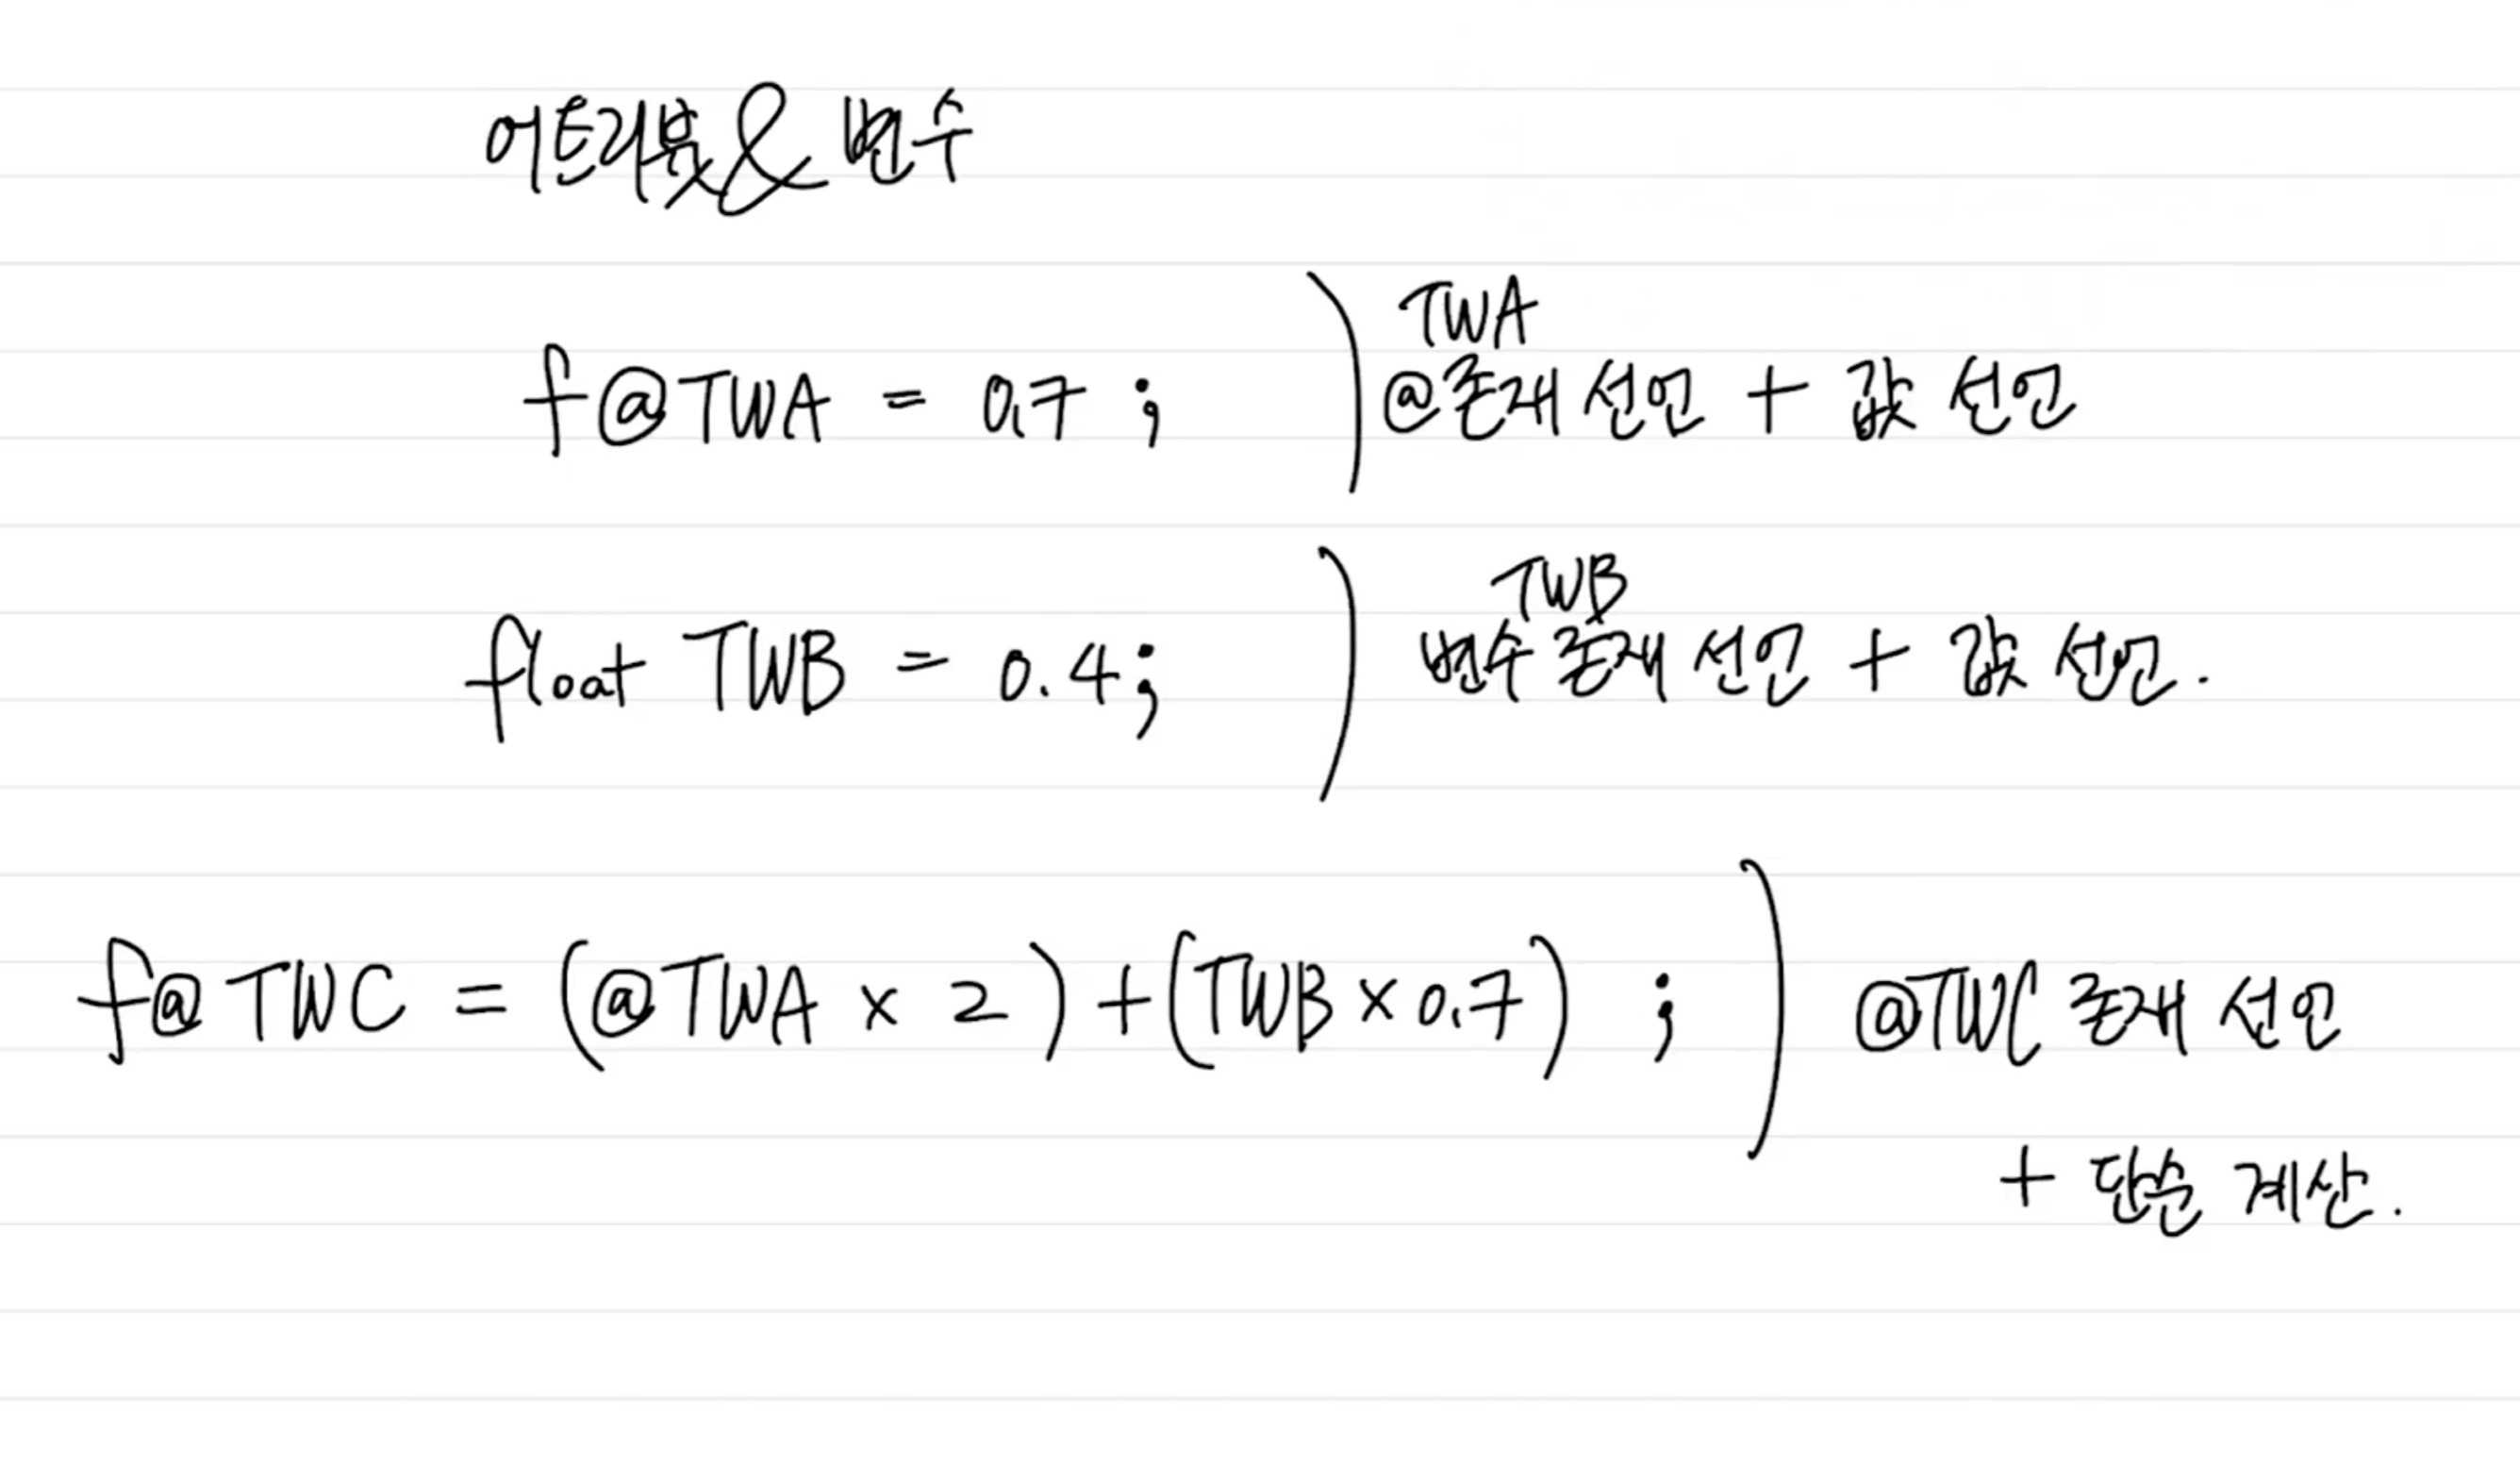 어트리븃 & 변수
f@TWA = 0.7 ;
TWA
@존재 선언 + 값 선언
float TWB = 0.4;
TWB
변수 존재 선언 + 값 선언.
f@TWC = (@TWA x 2) + (TWB x 0.7) ;
@TWC 존재 선언
+ 단순 계산.